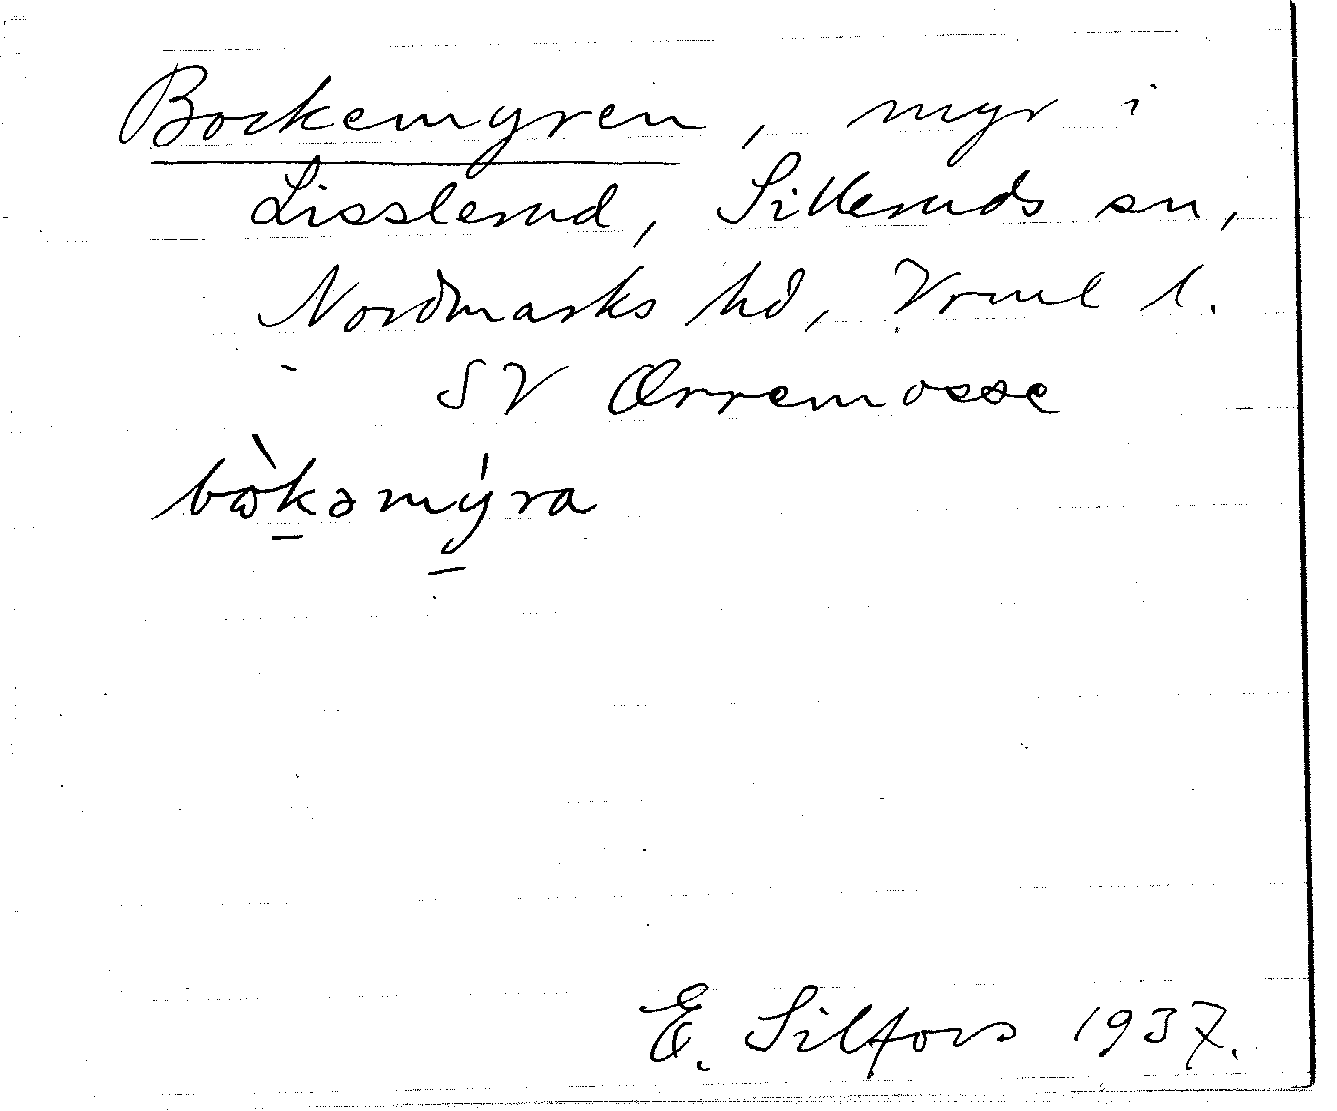 Bockemyren, myr i
Lisslerud, Silleruds sn,
Nordmarks hd, Vrml l.
SV Orremosse
bɷ̀kəmýra
E. Silfors 1937.